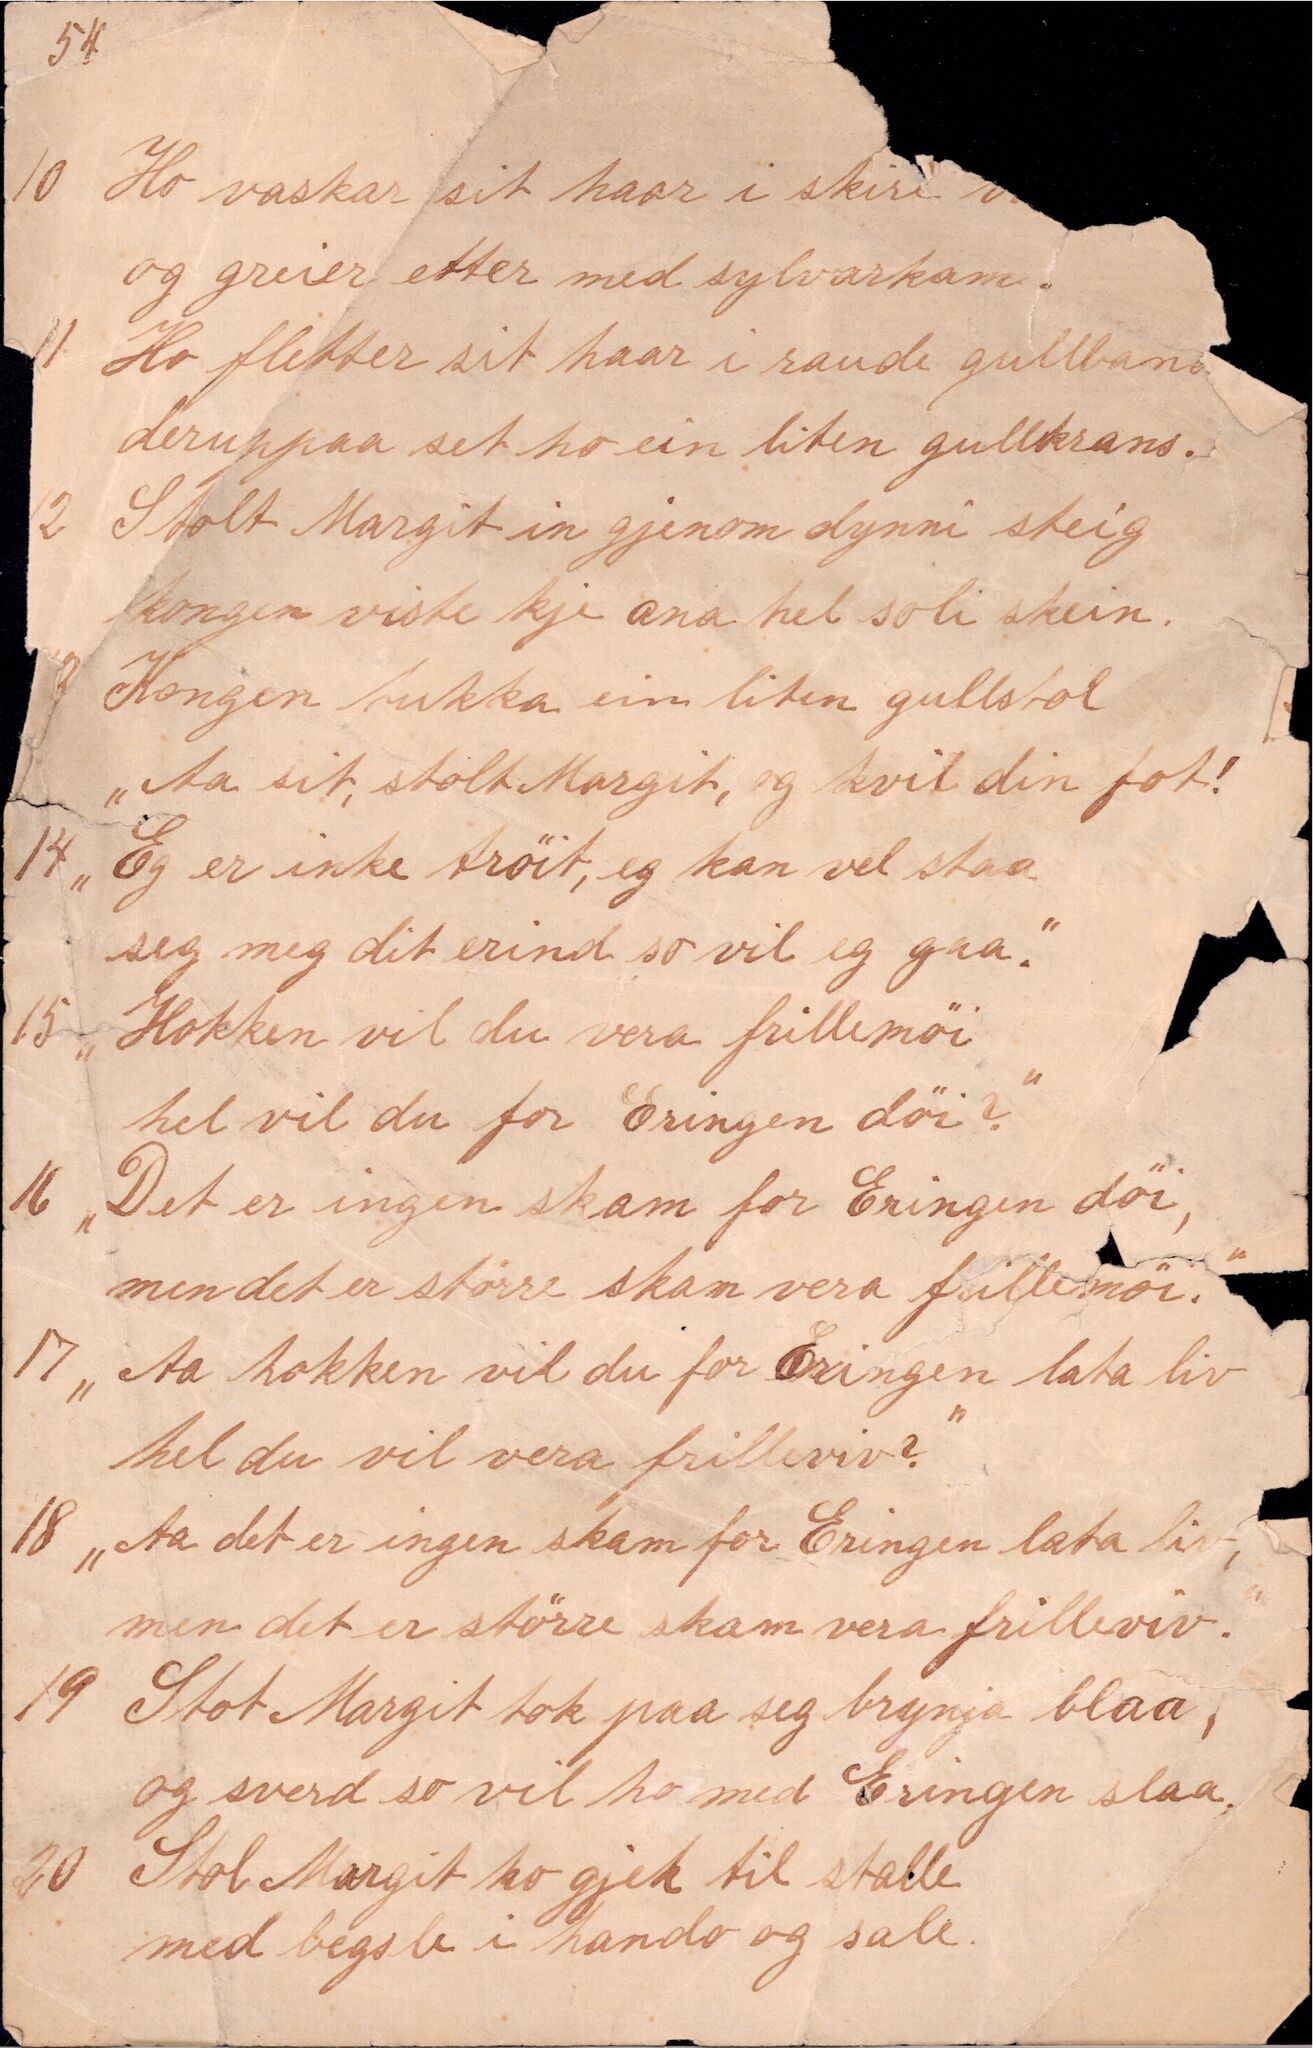 54
10 Ho vaskar sit haar i skire
og greier etter med sylvarkam.
11 Ho fletter sit haar i raude gullban
deruppaa set ho ein liten gullkrans.
12 Stolt Margit in gjenom dynni steig
kongen viste kje ana hel soli skein.
3 Kongen tukka ein liten gullstol
„Aa sit, stolt Margit, og kvil din fot!
14 „Eg er inke tröit, eg kan vel staa
seg meg dit erind so vil eg gaa."
15 „Hokken vil du vera frillemöi
hel vil du for Eringen döi?"
16 „Det er ingen skam for Eringen döi,
men det er större skam vera frillemöi."
17 „Aa hokken vil du for Eringen lata liv
hel du vil vera frilleviv?"
18 „Aa det er ingen skam for Eringen lata liv,
men det er större skam vera frilleviv."
19 Stot Margit tok paa seg brynja blaa,
og sverd so vil ho med Eringen slaa.
20 Stol Margit ho gjek til stalle
med begsle i hando og sale.